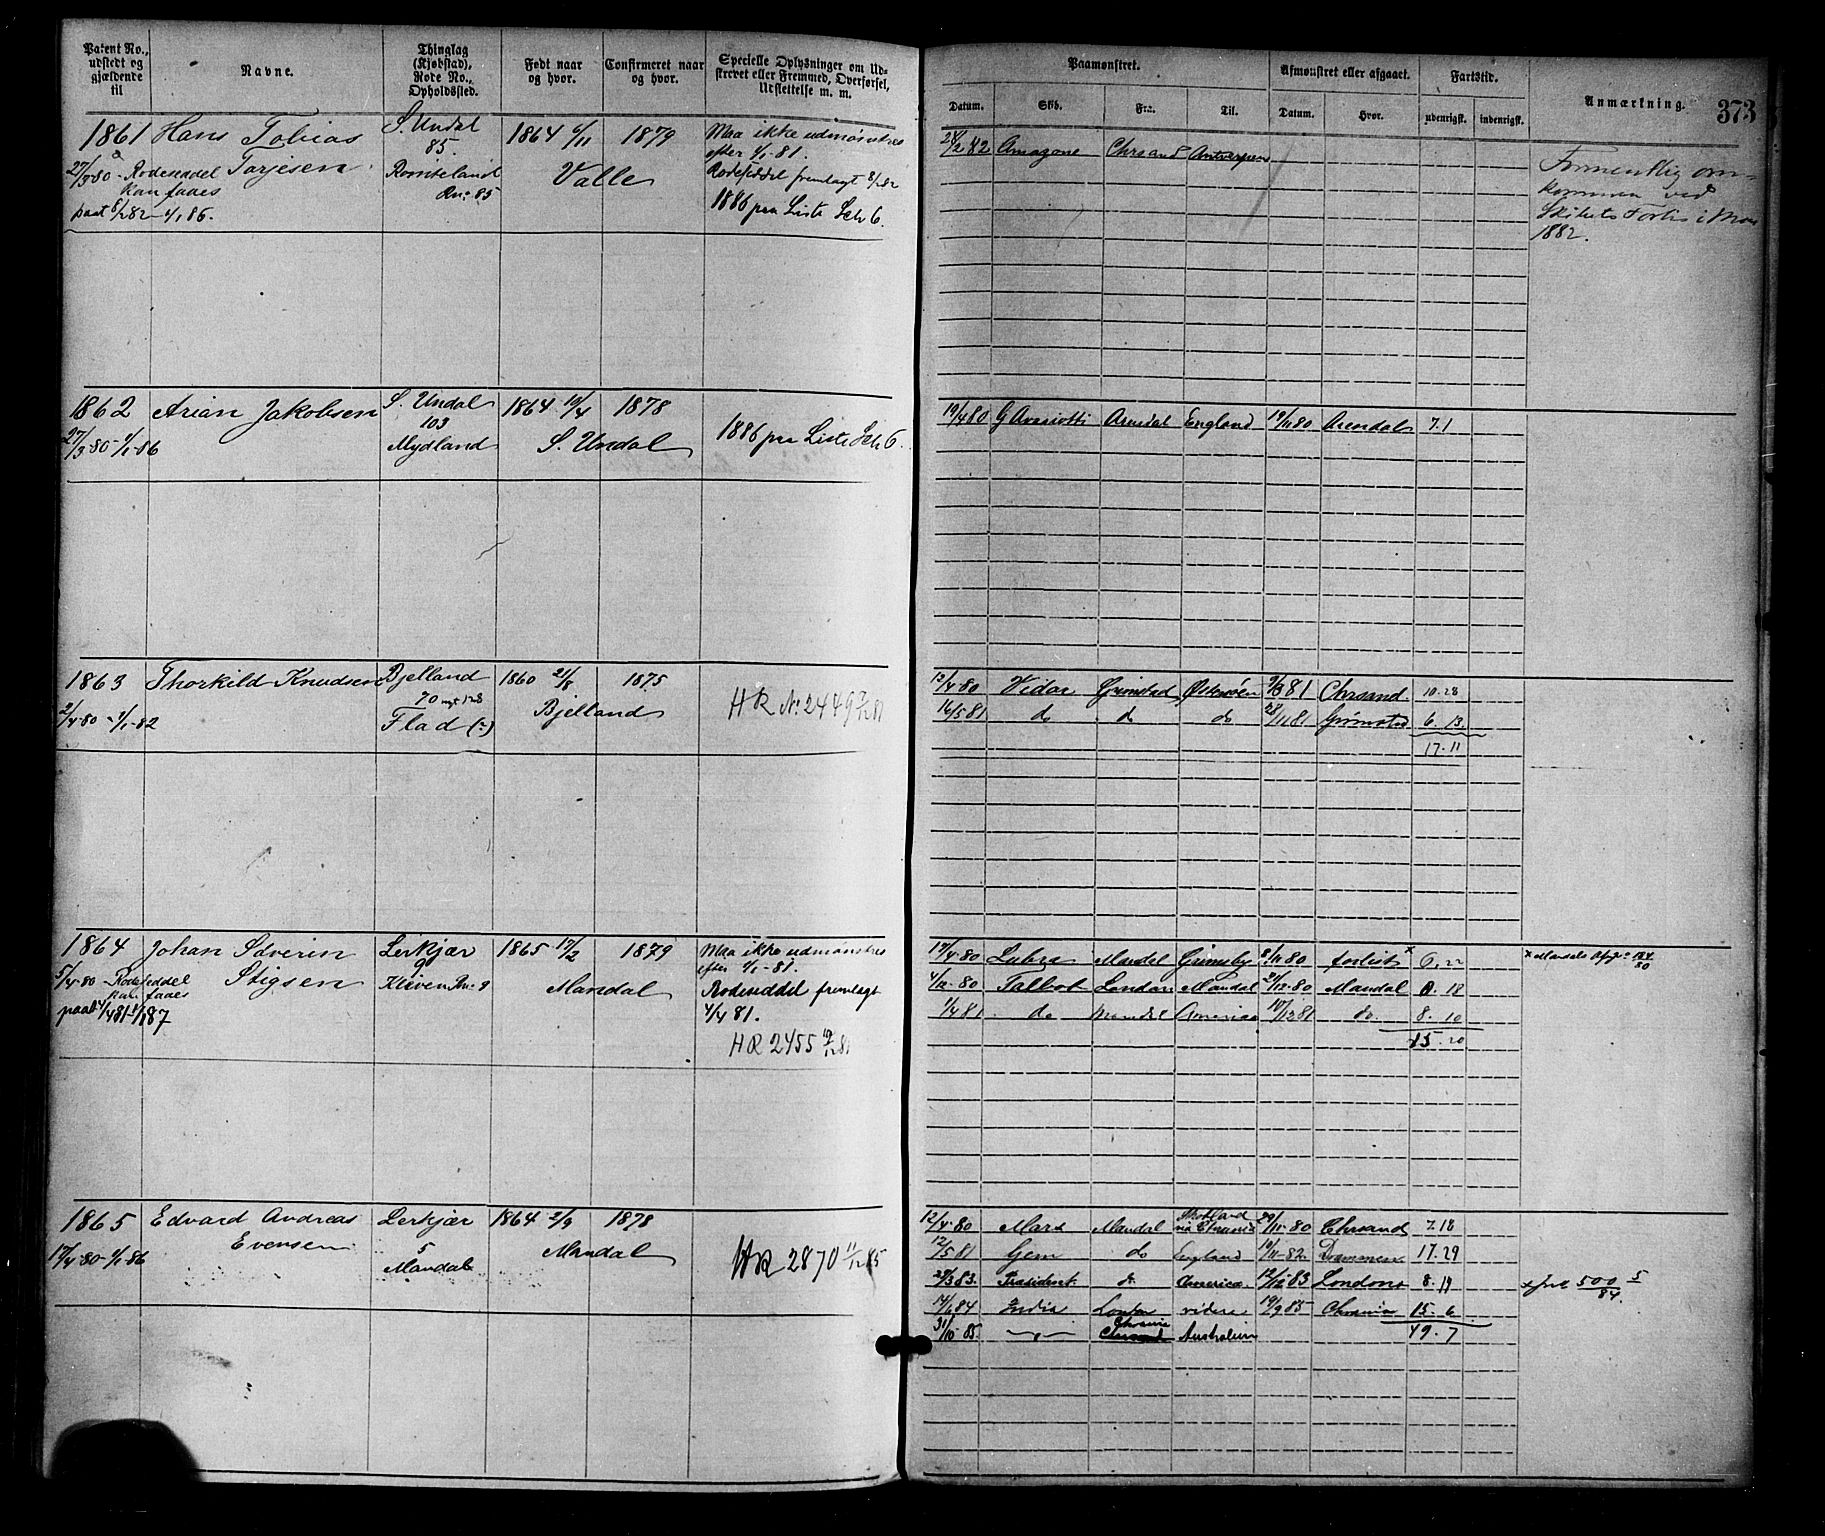 Patent No., udstedt og gjældende til
Navne.
Thinglag (Kjøbstad), Rode No., Opholdssted.
Født naar og hvor.
Confirmeret naar og hvor.
Specielle Oplysninger om Udskrevet eller Fremmed, Overførsel, Udslettelse m. m.
Paamønstret.
Afmønstret eller afgaaet.
Fartstid.
Anmærkning.
373
Datum.
Skib.
Fra.
Til.
Datum.
Hvor.
udenrigsk.
indenrigsk.
1861 Hans Tobias S. Undal 1864 6/11 1879 Maa ikke udmønstres
85. efter 1/1-81.
27/3-80 Rodeseddel Tarjesen Valle Rodeseddel fremlagt 8/2 82
kan faaes Rno: 85 1886 paa Liste Litr 6.
paat 8/2 82-1/1 86.
24/2 82 Amazone Chrsand Antwerpen
Formentlig om-
kommen ved
Skibets Forlis i Mars
1882.
1862 Arian Jakobsen S. Undal 1864 10/4 1878
103
27/3-80-1/1-86 Mydland S. Undal 1886 paa Liste Litr 6.
19/4 80 Arendal England 19/11 80 Arendal 7.1
1863 Thorkild Knudsen Bjelland 1860 21/8 1875
70 nyt 128
2/4-80-1/1-82 Flad (?) Bjelland HR No 2449 7/12 81
12/4-80 Vidar Grimstad Østersøen 9/3 81 Chrsand 10-28
16/5 81 do do do 28/11 81 Grimstad 6.13
17-11
1864 Johan Severin Lerkjær 1865 17/2 1879 Maa ikke udmønstres
9 efter 1/1-81.
5/4-80-Rodeseddel Stigsen Kleven Rno: 9 Mandal Rodeseddel fremlagt
kan faaes 4/4 81.
paat 4/4 81-1/1 87
HR 2455 10/12 81
17/4-80 Mandal Grimsby 9/11 80 forlist x 6.22
4/12-80 Talbot London Mandal 21/12-80 Mandal 0.18
1/4 81 do Mandal Amerika 17/12 81 do 8.10
15.20
1865 Edvard Andreas Lerkjær 1864 2/9 1878
5
17/4-80-1/1-86 Evensen Mandal Mandal HR 2870 11/12 85
12/4-80 Mars Mandal Skotland via Chrania 30/11-80 Chrsand 7.18
12/5 81 Gem do England 10/11-82 Drammen 17.29
29/3 83 Præsident do America 12/12 83 London x 8.19
x 500 5/84.
14/6 84 India London videre 19/9 85 Chrania 15.6
31/10-85 Chrania Australien 49.7